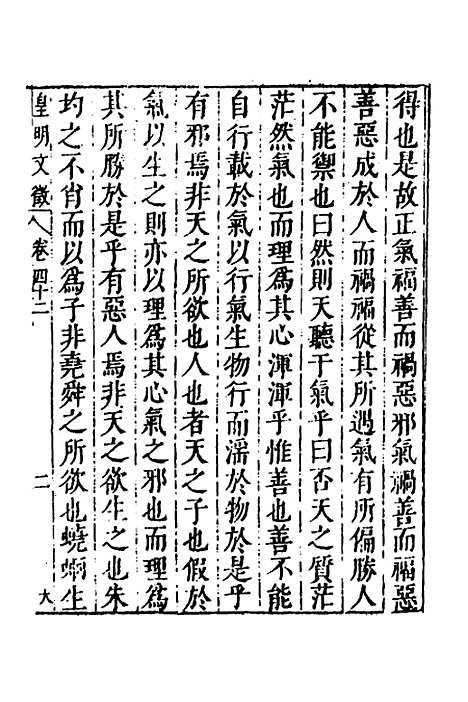 得也是故正氣福善而禍惡邪氣禍善而福惡
善惡成於人而禍福從其所遇氣有所偏勝人
不能禦也曰然則天聽于氣乎曰否天之質茫
茫然氣也而理爲其心渾渾乎惟善也善不能
自行載於氣以行氣生物行而淫於物於是乎
有邪焉非天之所欲也人也者天之子也假於
氣以生之則亦以理爲其心氣之邪也而理爲
其所勝於是乎有惡人焉非天之欲生之也朱
均之不肖而以爲子非堯舜之所欲也蟯蛔生
皇明文徵 卷四十二 二 大